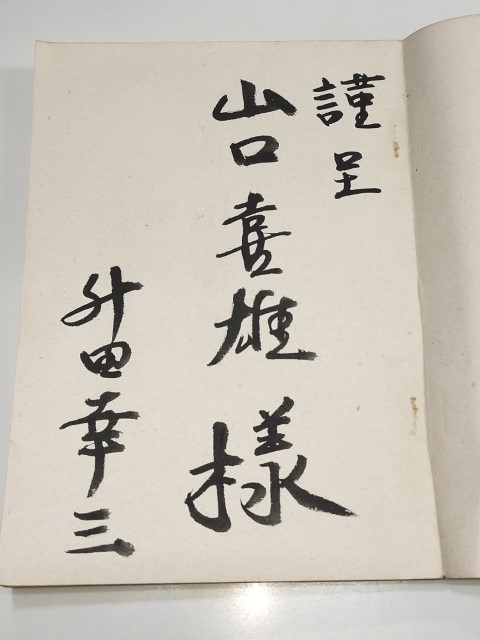 謹呈
山口喜雄様
升田幸三